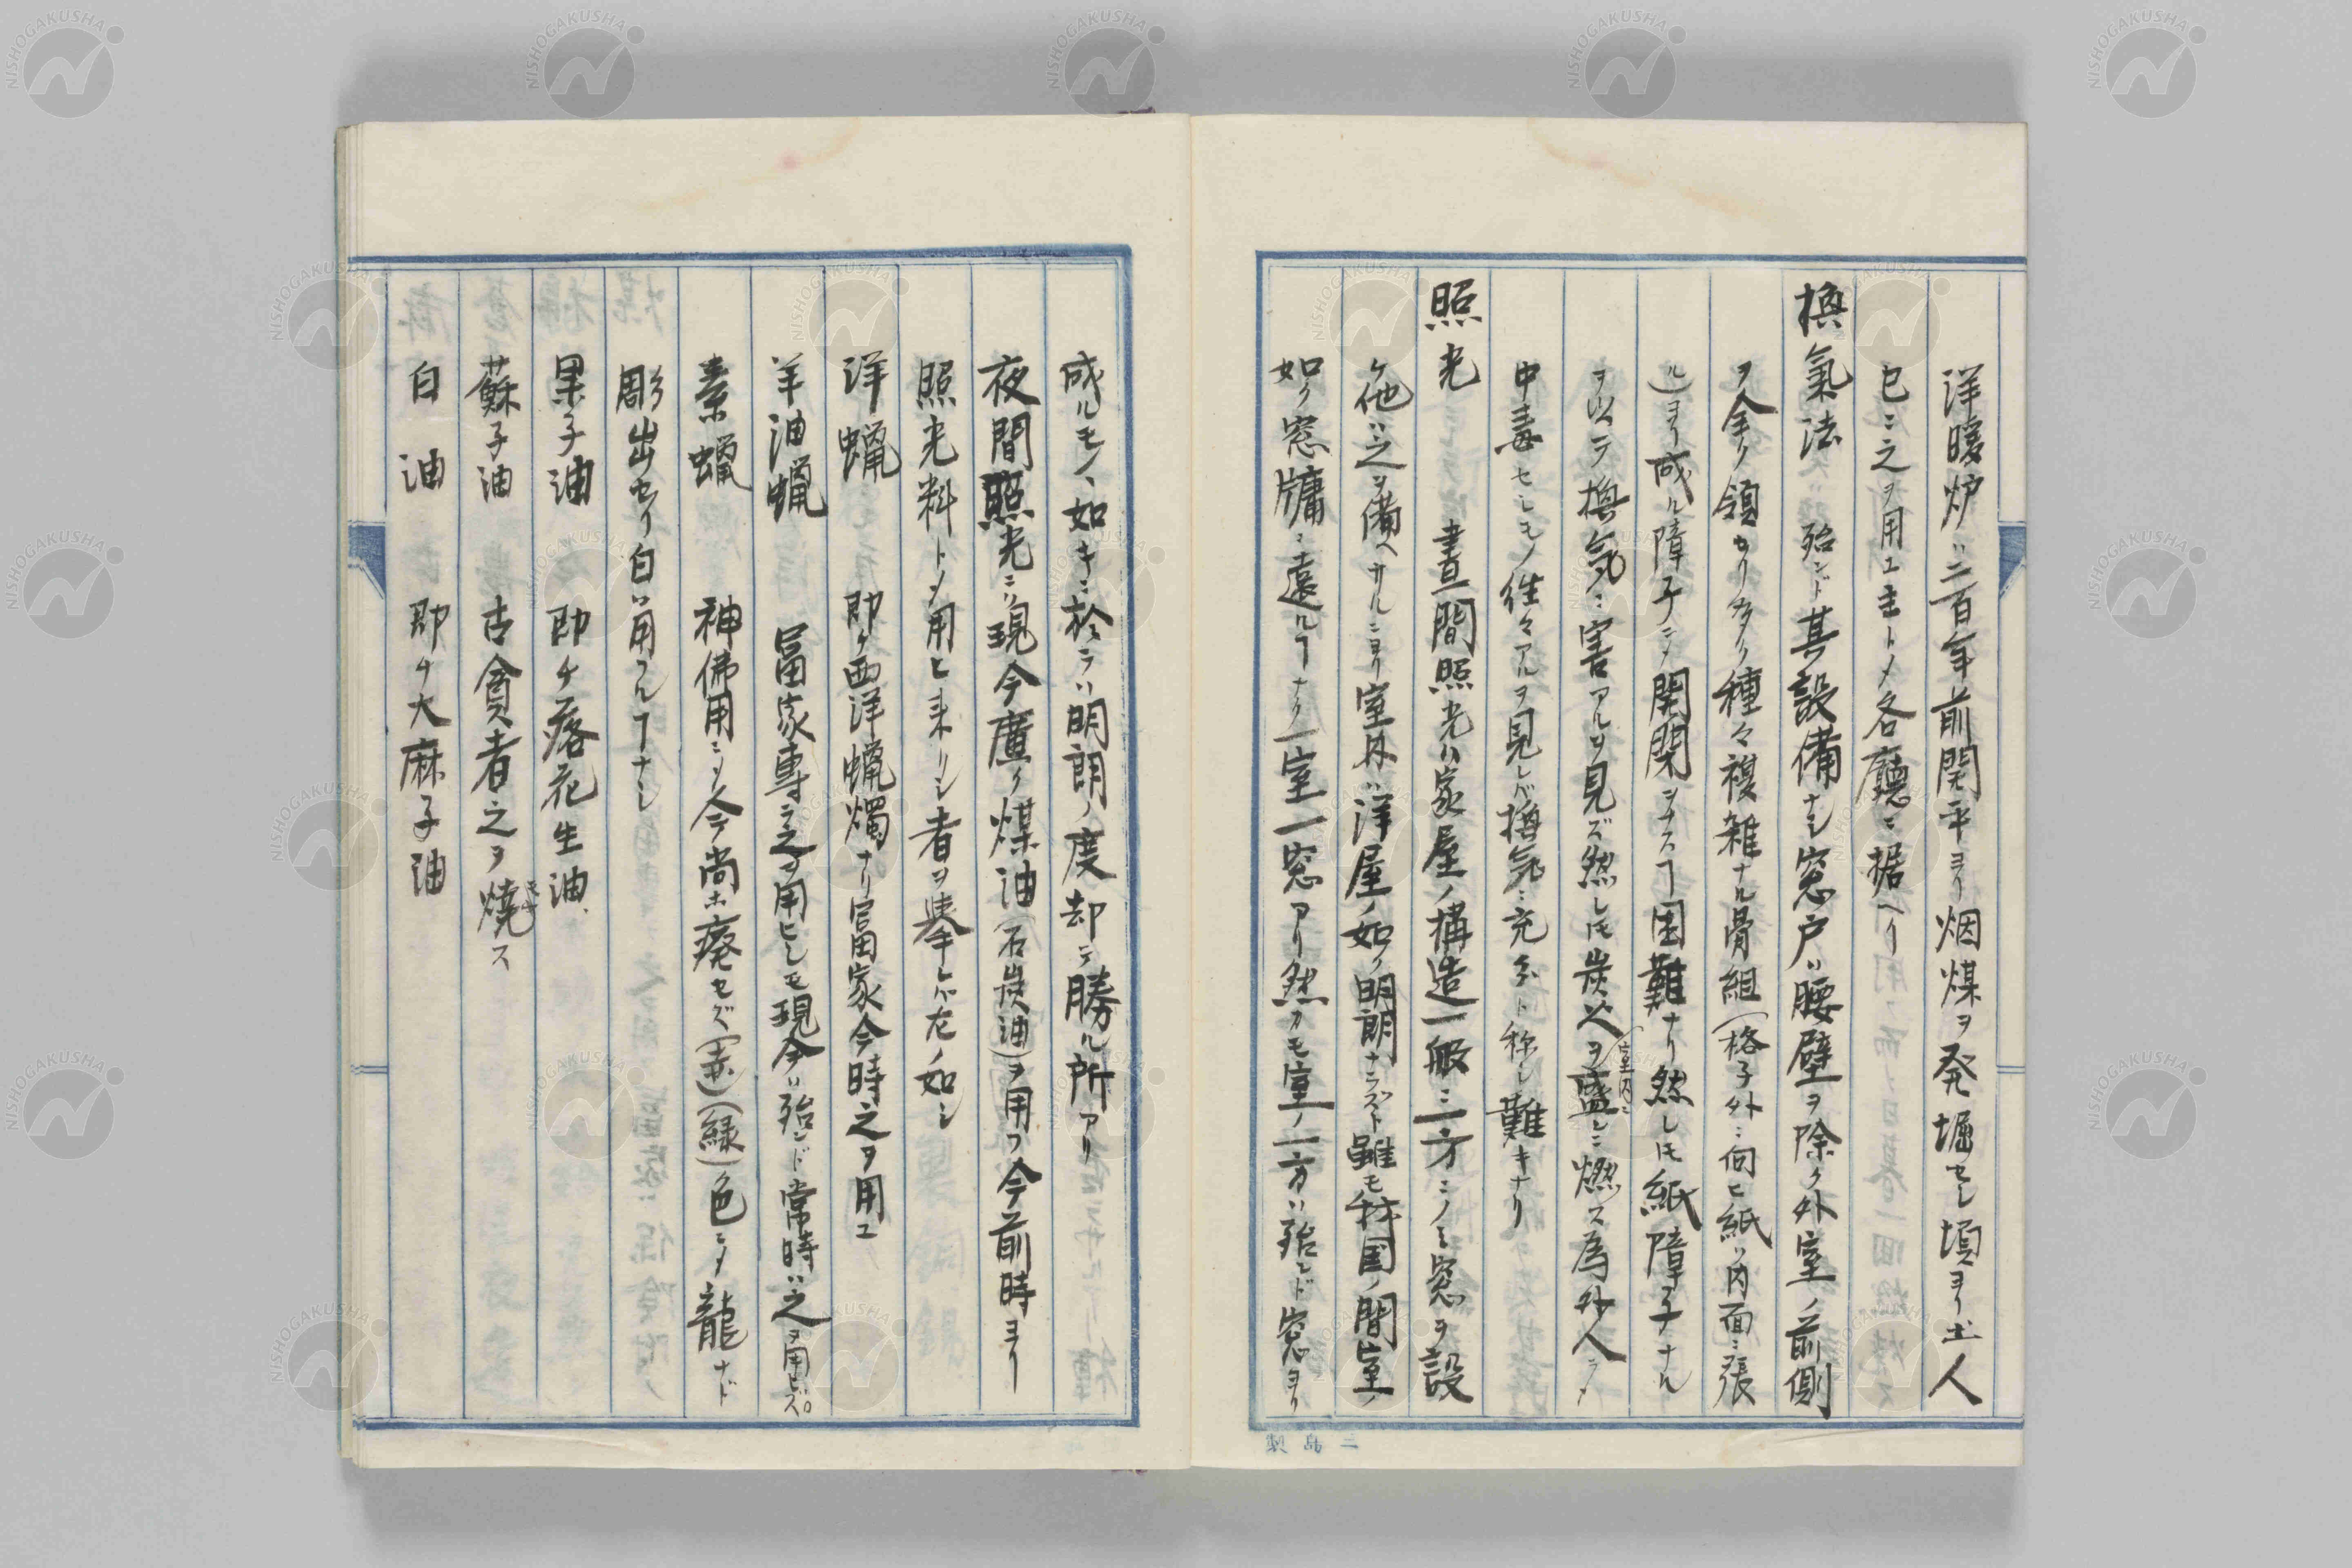 洋暖炉ハ二百年前開平ヨリ烟煤ヲ発堀セシ頃ヨリ土人
已ニ之ヲ用エ主トメ各廳ニ据ヘヿ
換氣法 殆ンド其設備ナシ窓戸ハ腰壁ヲ除ク外室ノ前側
ヲ全ク領セリ而ノ種々複雑ナル骨組(格子外ニ向ヒ紙ハ内面ニ張
ル)ヨリ成ル障子ニメ開閉シナスヿ困難ナリ然レ𪜈紙障子ナル
ヲ以テ換気ニ害アルヲ見ズ然レ𪜈炭火ヲ室内ニ盛ニ燃ス為外人ニメ
中毒セシモノ往々アルヲ見レバ換気ニ充分ト称シ難キナリ
照光 晝間照光ハ家屋ノ構造一般ニ二方ニノミ窓ヲ設
ケ他ハ之ヲ備ヘサルニヨリ室外ハ洋屋ノ如ク明朗ナラズト雖モ我国ノ間室ノ
如ク窓牗ニ遠ルヿナク一室一窓アリ然カモ室ノ一方ハ殆ンド窓ヨリ
成ルモノヽ如キニ於テハ明朗ノ度却テ勝ル所アリ
夜間照光ニハ現今廣ク煤油(石炭油)ヲ用フ今前時ヨリ
照光料トメ用ヒ来リシ者ヲ挙レバ左ノ如シ
洋蠟 即ケ西洋蠟燭ナリ富家今時之ヲ用エ
羊油蠟 冨家専ラ之ヲ用ヒシモ現今ハ殆ンド常時ハ之ヲ用ヒズ。
素蠟 神佛用ニメ今尚ホ廢セズ(赤)(緑)色ニメ龍ナド
彫出セリ白ハ用フルヿナシ
果子油 即ケ落花生油
蘇子油 古貪者之ヲ燒モヤス
白油 即ケ大麻子油
三島製
NISHOGAKUSHA